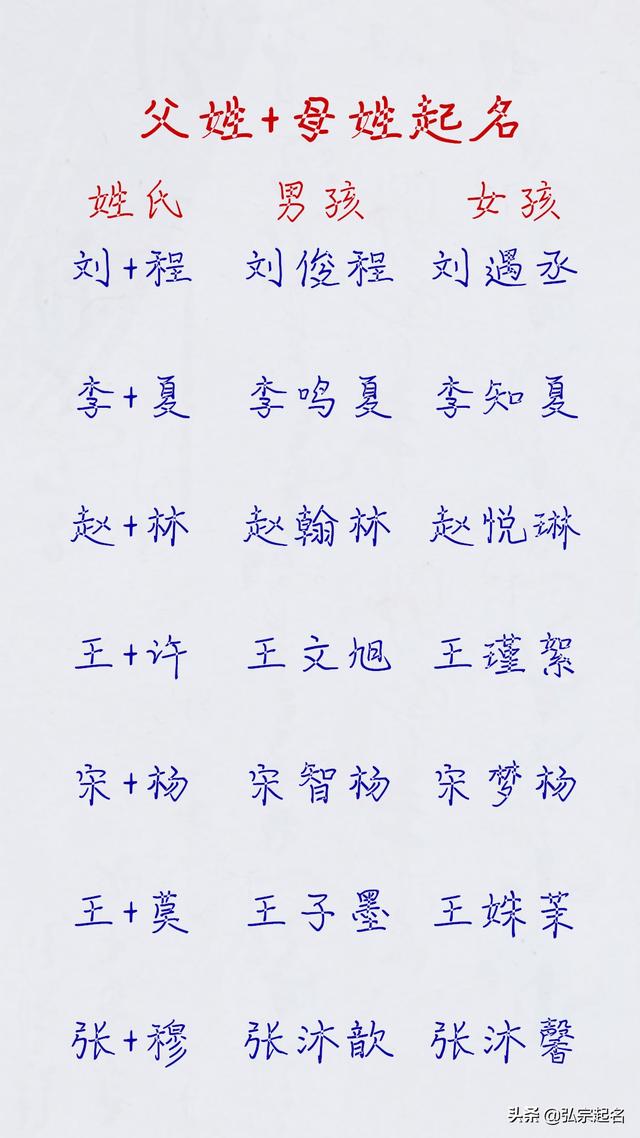 父姓+母姓起名
姓氏 男孩 女孩
刘+程 刘俊程 刘遇丞
李+夏 李鸣夏 李知夏
赵+林 赵翰林 赵悦琳
王+许 王文旭 王瑾絮
宋+杨 宋智杨 宋梦杨
王+莫 王子墨 王姝茉
张+穆 张沐歆 张沐馨
头条 @弘宗起名